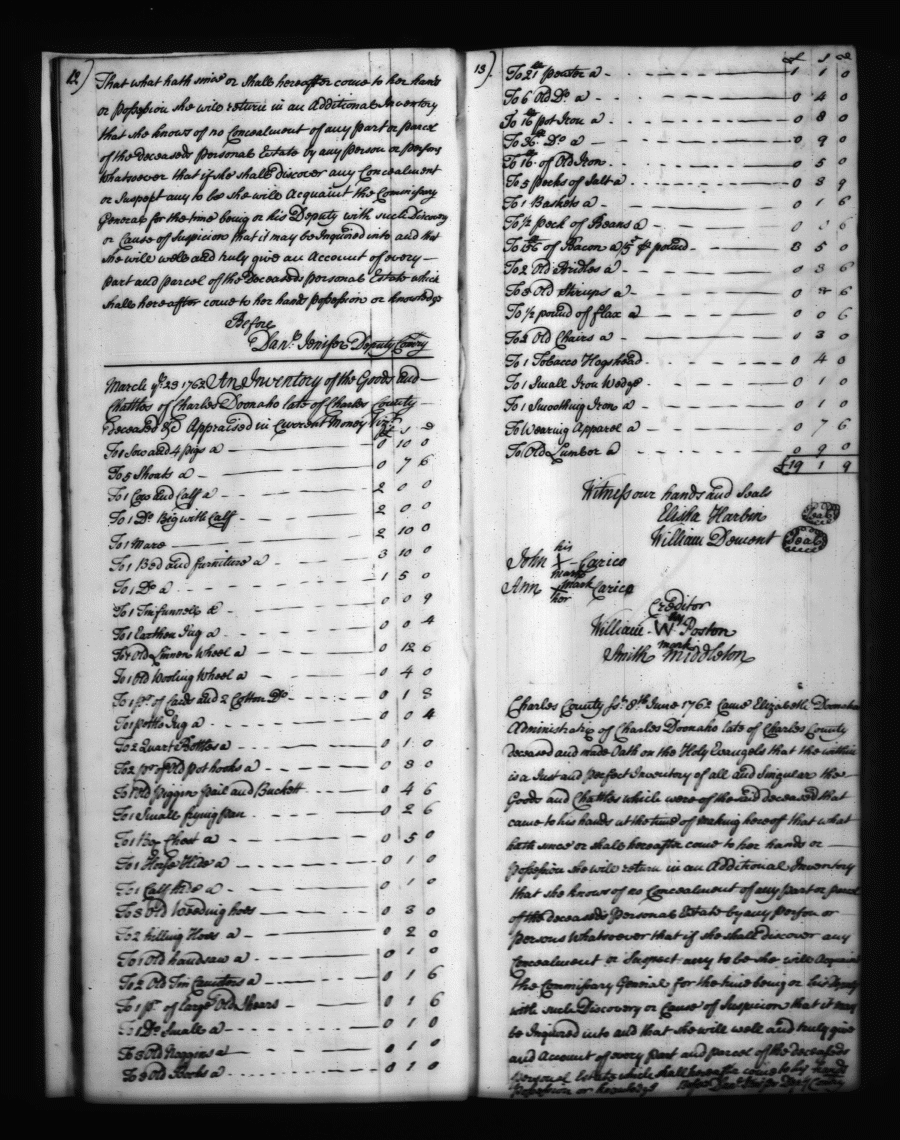 12)
That what hath since or shall hereafter come to her hands
or possession she will return in an Additional Inventory
that she knows of no Concealment of any part or parcel
of the deceaseds Personal Estate by any person or persons
Whatsoever that if she shall discover any Concealment
or Suspect any to be she will Acquaint the Commissary
General for the time being or his Deputy with such Discovery
or Cause of Suspicion that it may be Inquired into and that
she will well and truly give an Account of every
part and parcel of the Deceaseds personal Estate which
shall hereafter come to her hands possession or knowledge
Before
Danl. Jenifer Deputy Comry
March ye 23 1762 An Inventory of the Goods and
Chattles of Charles Doonaho late of Charles County
deceased &c Appraised in Current Money Vizt.
£ s d
To 1 Sow and 4 pigs a 0 10 0
To 5 Shoats a 0 7 6
To 1 Cow and Calf a 2 0 0
To 1 Do. Big with Calf 2 0 0
To 1 Mare 2 10 0
To 1 Bed and furniture a 3 10 0
To 1 Do a 1 5 0
To 1 Tin funnell a 0 0 9
To 1 Earthen Jug a 0 0 4
To 1 Old Linnen Wheel a 0 12 6
To 1 Old Wooling Wheel a 0 4 0
To 1 pr. of Cards and 2 Cotton Do 0 1 8
To 1 pottle Jug a 0 0 4
To 2 Quart Bottles a 0 1 0
To 2 pr of Old pot hooks a 0 3 0
To 1 Old piggen pail and Buckett 0 4 6
To 1 Small frying pan 0 2 6
To 1 Chest a 0 5 0
To 1 Horse Hide a 0 1 0
To 1 Calf hide a 0 1 0
To 3 Old Weeding hoes 0 3 0
To 2 hilling Hoes a 0 2 0
To 1 Old handsaw a 0 1 0
To 2 Old Tin Canisters a 0 1 6
To 1 pr. of large Old Shears 0 1 6
To 1 Do Small a 0 1 0
To 3 Old Noggins a 0 1 0
To 3 Old Books a 0 1 0
13)
£ s d
To 21 lb pewter a 1 1 0
To 6 Old Do a 0 4 0
To 16 lb pot Iron a 0 8 0
To 36 lb Do a 0 9 0
To 16 lb of Old Iron 0 5 0
To 5 pecks of Salt a 0 3 9
To 1 Baskets a 0 1 6
To 1/2 peck of Beans a 0 6
To lb of Bacon a pound 5 0
To 2 Old Bridles a 0 3 6
To 3 Old Stirups a 0 6
To 1/2 pound of flax a 0 0 6
To 2 Old Chairs a 0 3 0
To 1 Tobacco Hogshead 0 4 0
To 1 Small Iron Wedge 0 1 0
To 1 Smoothing Iron a 0 1 0
To Wearing Apparel a 0 7 6
To Old Lumber a 0 9 0
£19 1 9
Witness our hands and Seals
Elisha Harbin Seal
William Dement Seal
his
John X Carico
mark
Ann mark Carico
her
Creditor
William W Poston
mark
Smith Middleton
Charles County Sst. 8th June 1762 Came Elizabeth Doonaho
Administratrix of Charles Doonaho late of Charles County
deceased and made Oath on the Holy Evangels that the within
is a Just and perfect Inventory of all and Singular the
Goods and Chattles which were of the said deceased that
came to his hands at the time of making hereof that what
hath since or shall hereafter come to her hands or
possession she will return in an Additional Inventory
that she knows of no Concealment of any part or parcel
of the deceaseds Personal Estate by any person or
persons Whatsoever that if she shall discover any
Concealment or Suspect any to be she will Acquaint
the Commissary General for the time being or his Deputy
with such Discovery or Cause of Suspicion that it may
be Inquired into and that she will well and truly give
and Account of every part and parcel of the deceaseds
personal Estate which shall hereafter come to his hands
possession or knowledge Before Danl Jenifer Depy Comry